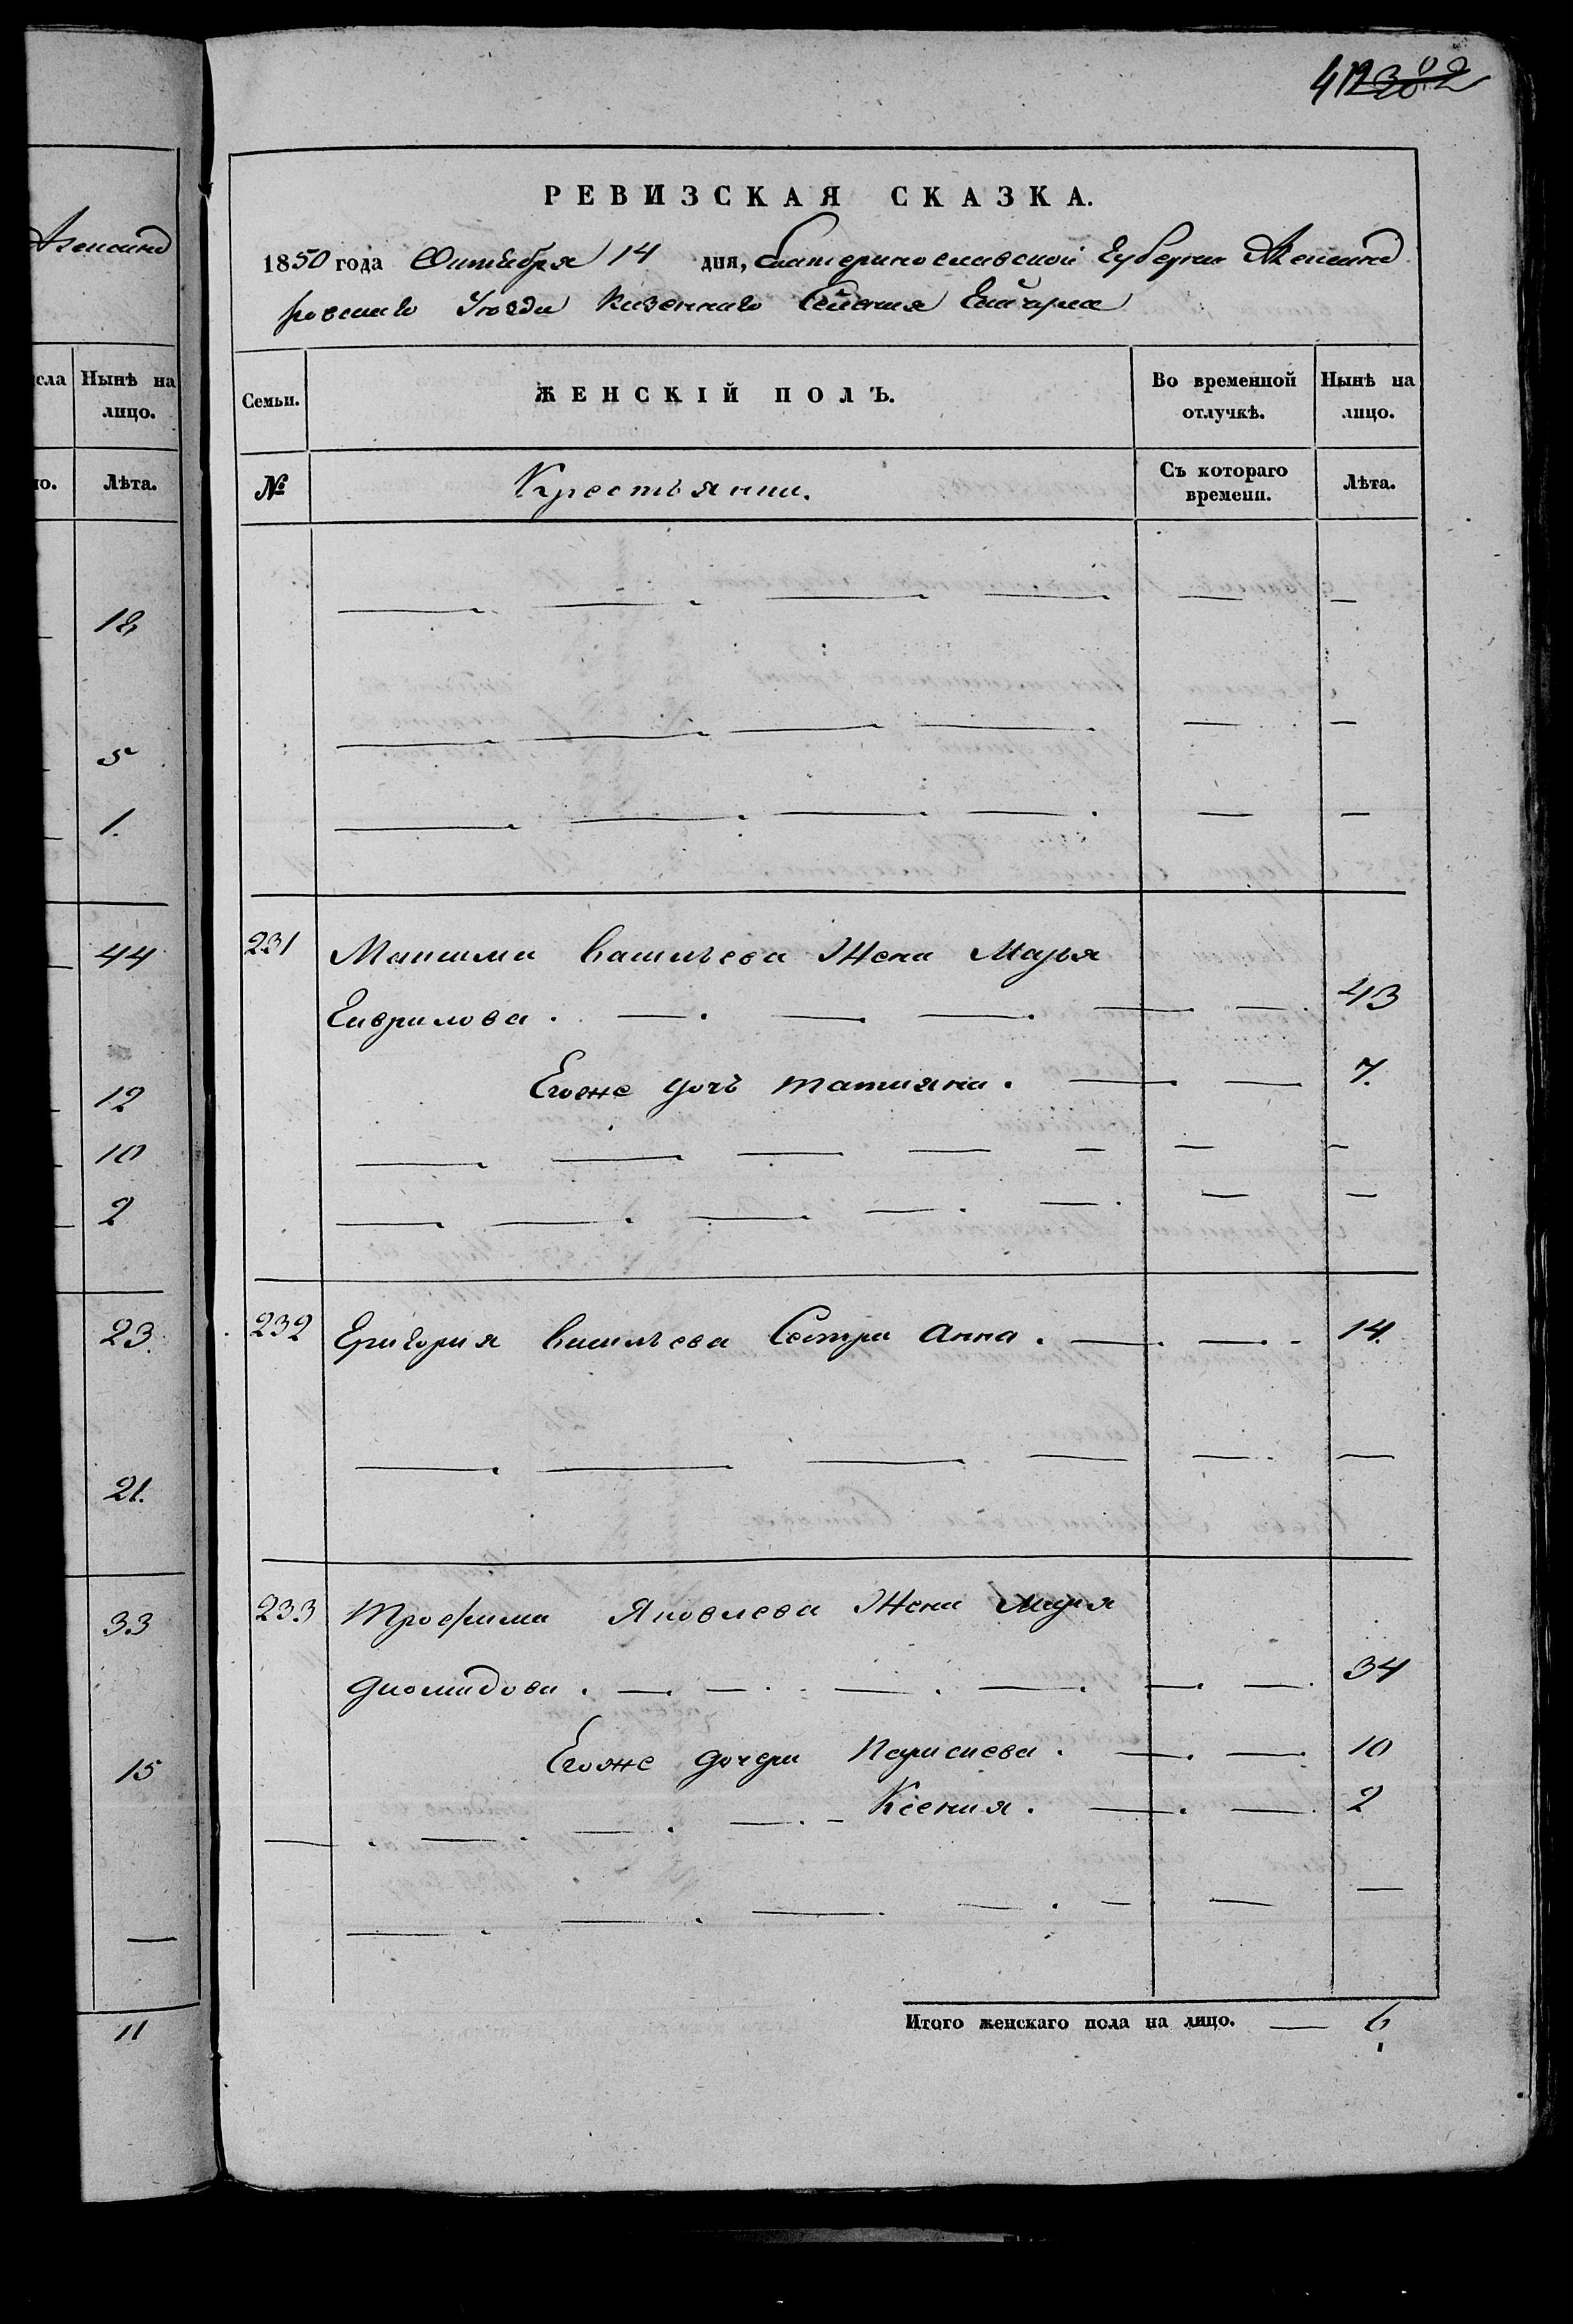 Александ
сла
Нынѣ на
лицо.
но.
Лѣта.
18
5
1.
44
12
10
2
23.
21.
33
15
11
412 382
РЕВИЗСКАЯ СКАЗКА.
1850 года Октября 14 дня, Екатеринославской Губернии Александ
ровскаго Уѣзда Казеннаго Селения Гайчула
Семьи.
ЖЕНСКІЙ ПОЛЪ.
Во временной
отлучкѣ.
Нынѣ на
лицо.
№
Крестьянки.
Съ котораго
времени.
Лѣта.
231 Максима Васильева Жена Марья
Гаврилова. 43
Егоже дочь Татияна. 7.
232 Григория Васильева Сестра Анна. 14.
233 Трофима Яковлева Жена Мария
Диомидова. 34
Егоже дочери Параскева. 10
Ксения. 2
Итого женскаго пола на лицо. 6